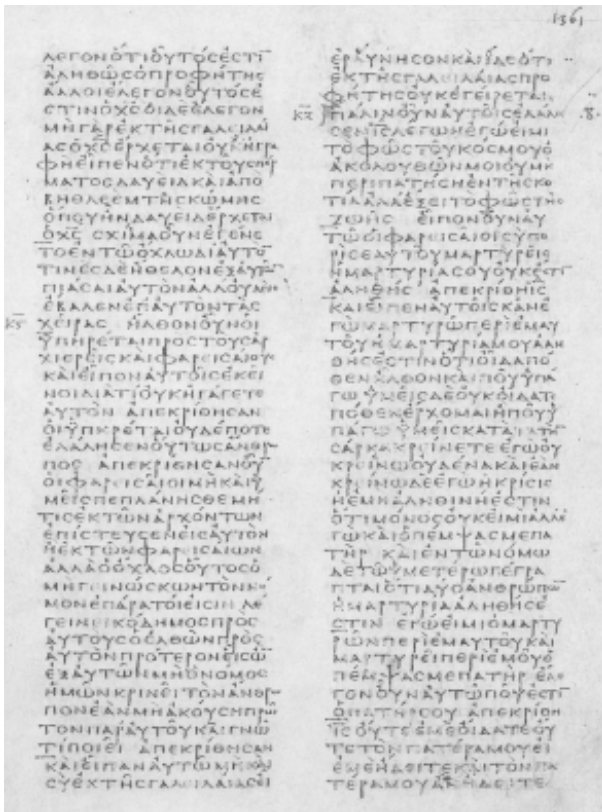 1361
ΛΕΓΟΝΟΤΙΟΥΤΟϹΕϹΤΙ
ΑΛΗΘΩϹΟΠΡΟΦΗΤΗϹ
ΑΛΛΟΙΕΛΕΓΟΝΟΥΤΟϹΕ
ϹΤΙΝΟΧϹΟΙΔΕΕΛΕΓΟΝ
ΜΗΓΑΡΕΚΤΗϹΓΑΛΕΙΛΑΙ
ΑϹΟΧϹΕΡΧΕΤΑΙΟΥΧΗΓΡΑ
ΦΗΕΙΠΕΝΟΤΙΕΚΤΟΥϹΠΕΡ
ΜΑΤΟϹΔΑΥΕΙΔΚΑΙΑΠΟ
ΒΗΘΛΕΕΜΤΗϹΚΩΜΗϹ
ΟΠΟΥΗΝΔΑΥΕΙΔΕΡΧΕΤΑΙ
ΟΧϹ ϹΧΙϹΜΑΟΥΝΕΓΕΝΕ
ΤΟΕΝΤΩΟΧΛΩΔΙΑΥΤΟ
ΤΙΝΕϹΔΕΗΘΕΛΟΝΕΞΑΥΤΩ
ΠΙΑϹΑΙΑΥΤΟΝΑΛΛΟΥΔΙϹ
ΕΒΑΛΕΝΕΠΑΥΤΟΝΤΑϹ
Κϛ ΧΕΙΡΑϹ ΗΛΘΟΝΟΥΝΟΙ
ΥΠΗΡΕΤΑΙΠΡΟϹΤΟΥϹΑΡ
ΧΙΕΡΕΙϹΚΑΙΦΑΡΕΙϹΑΙΟΥϹ
ΚΑΙΕΙΠΟΝΑΥΤΟΙϹΕΚΕΙ
ΝΟΙΔΙΑΤΙΟΥΚΗΓΑΓΕΤΕ
ΑΥΤΟΝ ΑΠΕΚΡΙΘΗϹΑΝ
ΟΙΥΠΗΡΕΤΑΙΟΥΔΕΠΟΤΕ
ΕΛΑΛΗϹΕΝΟΥΤΩϹΑΝΘΡΩ
ΠΟϹ ΑΠΕΚΡΙΘΗϹΑΝΟΥ
ΟΙΦΑΡΕΙϹΑΙΟΙΜΗΚΑΙΥ
ΜΕΙϹΠΕΠΛΑΝΗϹΘΕΜΗ
ΤΙϹΕΚΤΩΝΑΡΧΟΝΤΩΝ
ΕΠΙϹΤΕΥϹΕΝΕΙϹΑΥΤΟΝ
ΗΕΚΤΩΝΦΑΡΕΙϹΑΙΩΝ
ΑΛΛΑΟΟΧΛΟϹΟΥΤΟϹΟ
ΜΗΓΕΙΝΩϹΚΩΝΤΟΝΝΟ
ΜΟΝΕΠΑΡΑΤΟΙΕΙϹΙΝ ΛΕ
ΓΕΙΝΕΙΚΟΔΗΜΟϹΠΡΟϹ
ΑΥΤΟΥϹΟΕΛΘΩΝΠΡΟϹ
ΑΥΤΟΝΠΡΟΤΕΡΟΝΕΙϹΩ
ΕΞΑΥΤΩΝΜΗΟΝΟΜΟϹ
ΗΜΩΝΚΡΙΝΕΙΤΟΝΑΝΘΡΩ
ΠΟΝΕΑΝΜΗΑΚΟΥϹΗΠΡΩ
ΤΟΝΠΑΡΑΥΤΟΥΚΑΙΓΝΩ
ΤΙΠΟΙΕΙ ΑΠΕΚΡΙΘΗϹΑΝ
ΚΑΙΕΙΠΑΝΑΥΤΩΜΗΚΑΙ
ϹΥΕΚΤΗϹΓΑΛΕΙΛΑΙΑϹΕΙ
ΕΡΑΥΝΗϹΟΝΚΑΙΙΔΕΟΤΙ
ΕΚΤΗϹΓΑΛΕΙΛΑΙΑϹΠΡΟ
ΦΗΤΗϹΟΥΚΕΓΕΙΡΕΤΑΙ
ΚΖ ΠΑΛΙΝΟΥΝΑΥΤΟΙϹΕΛΑΛΗ ·8·
ϹΕΝΙϹΛΕΓΩΝΕΓΩΕΙΜΙ
ΤΟΦΩϹΤΟΥΚΟϹΜΟΥΟ
ΑΚΟΛΟΥΘΩΝΜΟΙΟΥΜΗ
ΠΕΡΙΠΑΤΗϹΗΕΝΤΗϹΚΟ
ΤΙΑΑΛΛΕΞΕΙΤΟΦΩϹΤΗϹ
ΖΩΗϹ ΕΙΠΟΝΟΥΝΑΥ
ΤΩΟΙΦΑΡΕΙϹΑΙΟΙϹΥΠΕ
ΡΙϹΕΑΥΤΟΥΜΑΡΤΥΡΕΙϹ
ΗΜΑΡΤΥΡΙΑϹΟΥΟΥΚΕϹΤΙ
ΑΛΗΘΗϹ ΑΠΕΚΡΙΘΗΙϹ
ΚΑΙΕΙΠΕΝΑΥΤΟΙϹΚΑΝΕ
ΓΩΜΑΡΤΥΡΩΠΕΡΙΕΜΑΥ
ΤΟΥΗΜΑΡΤΥΡΙΑΜΟΥΑΛΗ
ΘΗϹΕϹΤΙΝΟΤΙΟΙΔΑΠΟ
ΘΕΝΗΛΘΟΝΚΑΙΠΟΥΥΠΑ
ΓΩ ΥΜΕΙϹΔΕΟΥΚΟΙΔΑΤΕ
ΠΟΘΕΝΕΡΧΟΜΑΙΗΠΟΥΥ
ΠΑΓΩ ΥΜΕΙϹΚΑΤΑΤΗΝ
ϹΑΡΚΑΚΡΕΙΝΕΤΕΕΓΩΟΥ
ΚΡΕΙΝΩΟΥΔΕΝΑΚΑΙΕΑΝ
ΚΡΕΙΝΩΔΕΕΓΩΗΚΡΙϹΙϹ
ΗΕΜΗΑΛΗΘΙΝΗΕϹΤΙΝ
ΟΤΙΜΟΝΟϹΟΥΚΕΙΜΙΑΛΛΕ
ΓΩΚΑΙΟΠΕΜΨΑϹΜΕΠΑ
ΤΗΡ ΚΑΙΕΝΤΩΝΟΜΩ
ΔΕΤΩΥΜΕΤΕΡΩΓΕΓΡΑ
ΠΤΑΙΟΤΙΔΥΟΑΝΘΡΩΠΩ
ΗΜΑΡΤΥΡΙΑΑΛΗΘΗϹΕ
ϹΤΙΝ ΕΓΩΕΙΜΙΟΜΑΡΤΥ
ΡΩΝΠΕΡΙΕΜΑΥΤΟΥΚΑΙ
ΜΑΡΤΥΡΕΙΠΕΡΙΕΜΟΥΟ
ΠΕΜΨΑϹΜΕΠΑΤΗΡ ΕΛΕ
ΓΟΝΟΥΝΑΥΤΩΠΟΥΕϹΤΙ
ΟΠΑΤΗΡϹΟΥ ΑΠΕΚΡΙΘΗ
ΙϹΟΥΤΕΕΜΕΟΙΔΑΤΕΟΥ
ΤΕΤΟΝΠΑΤΕΡΑΜΟΥΕΙ
ΕΜΕΗΔΕΙΤΕΚΑΙΤΟΝΠΑ
ΤΕΡΑΜΟΥΑΝΗΔΕΙΤΕ